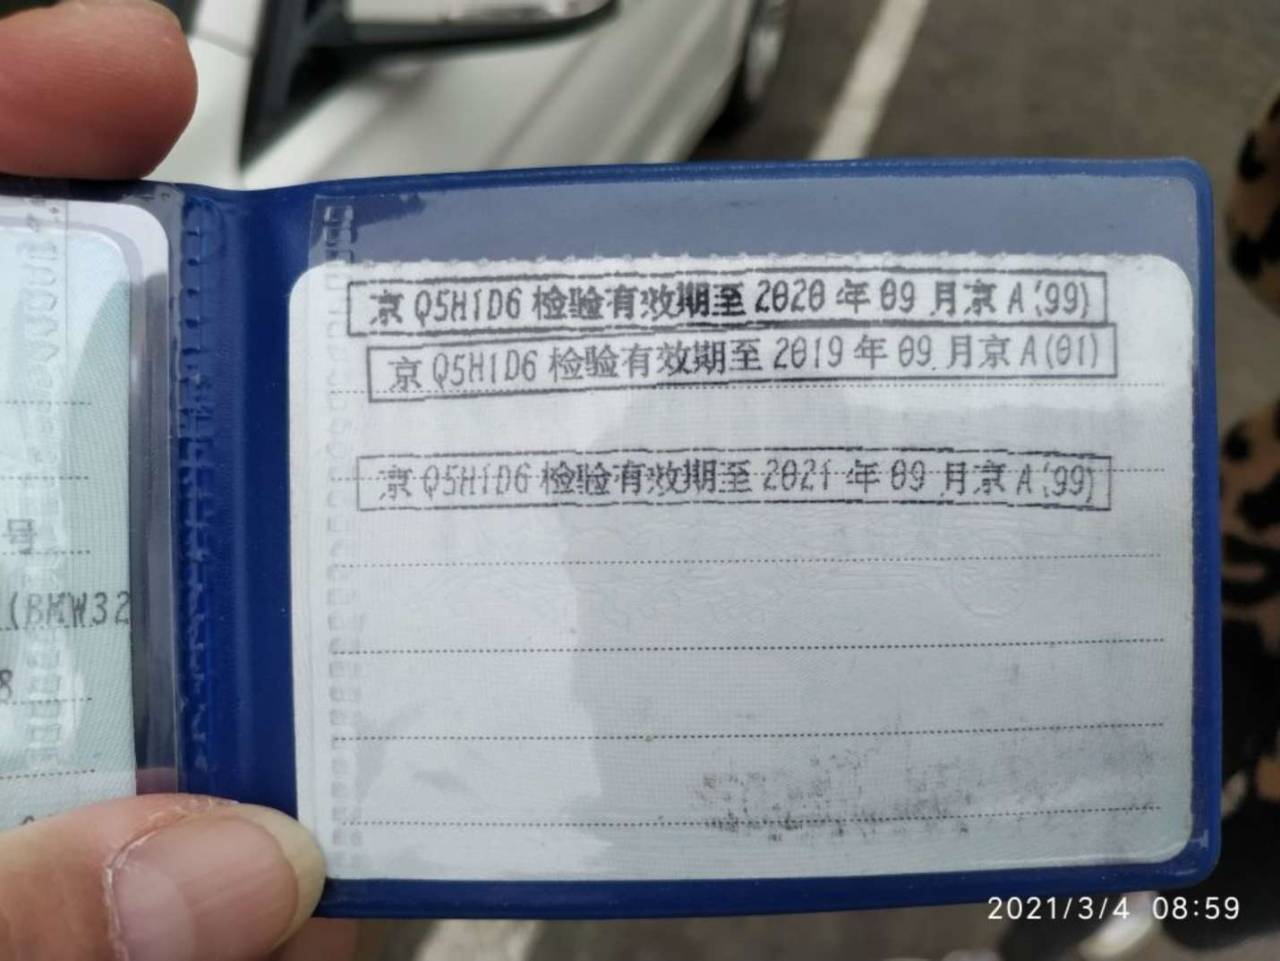 京 Q5H1D6 检验有效期至 2020 年 09 月京 A(99)
京 Q5H1D6 检验有效期至 2019 年 09 月京 A(01)
京 Q5H1D6 检验有效期至 2021 年 09 月京 A(99)
号
(BMW32
8
2021/3/4 08:59